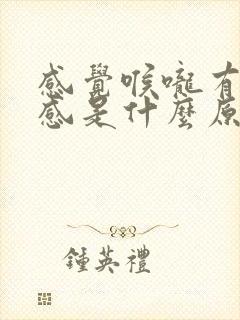 感覺喉嚨有
感是什麼原
鍾英禮